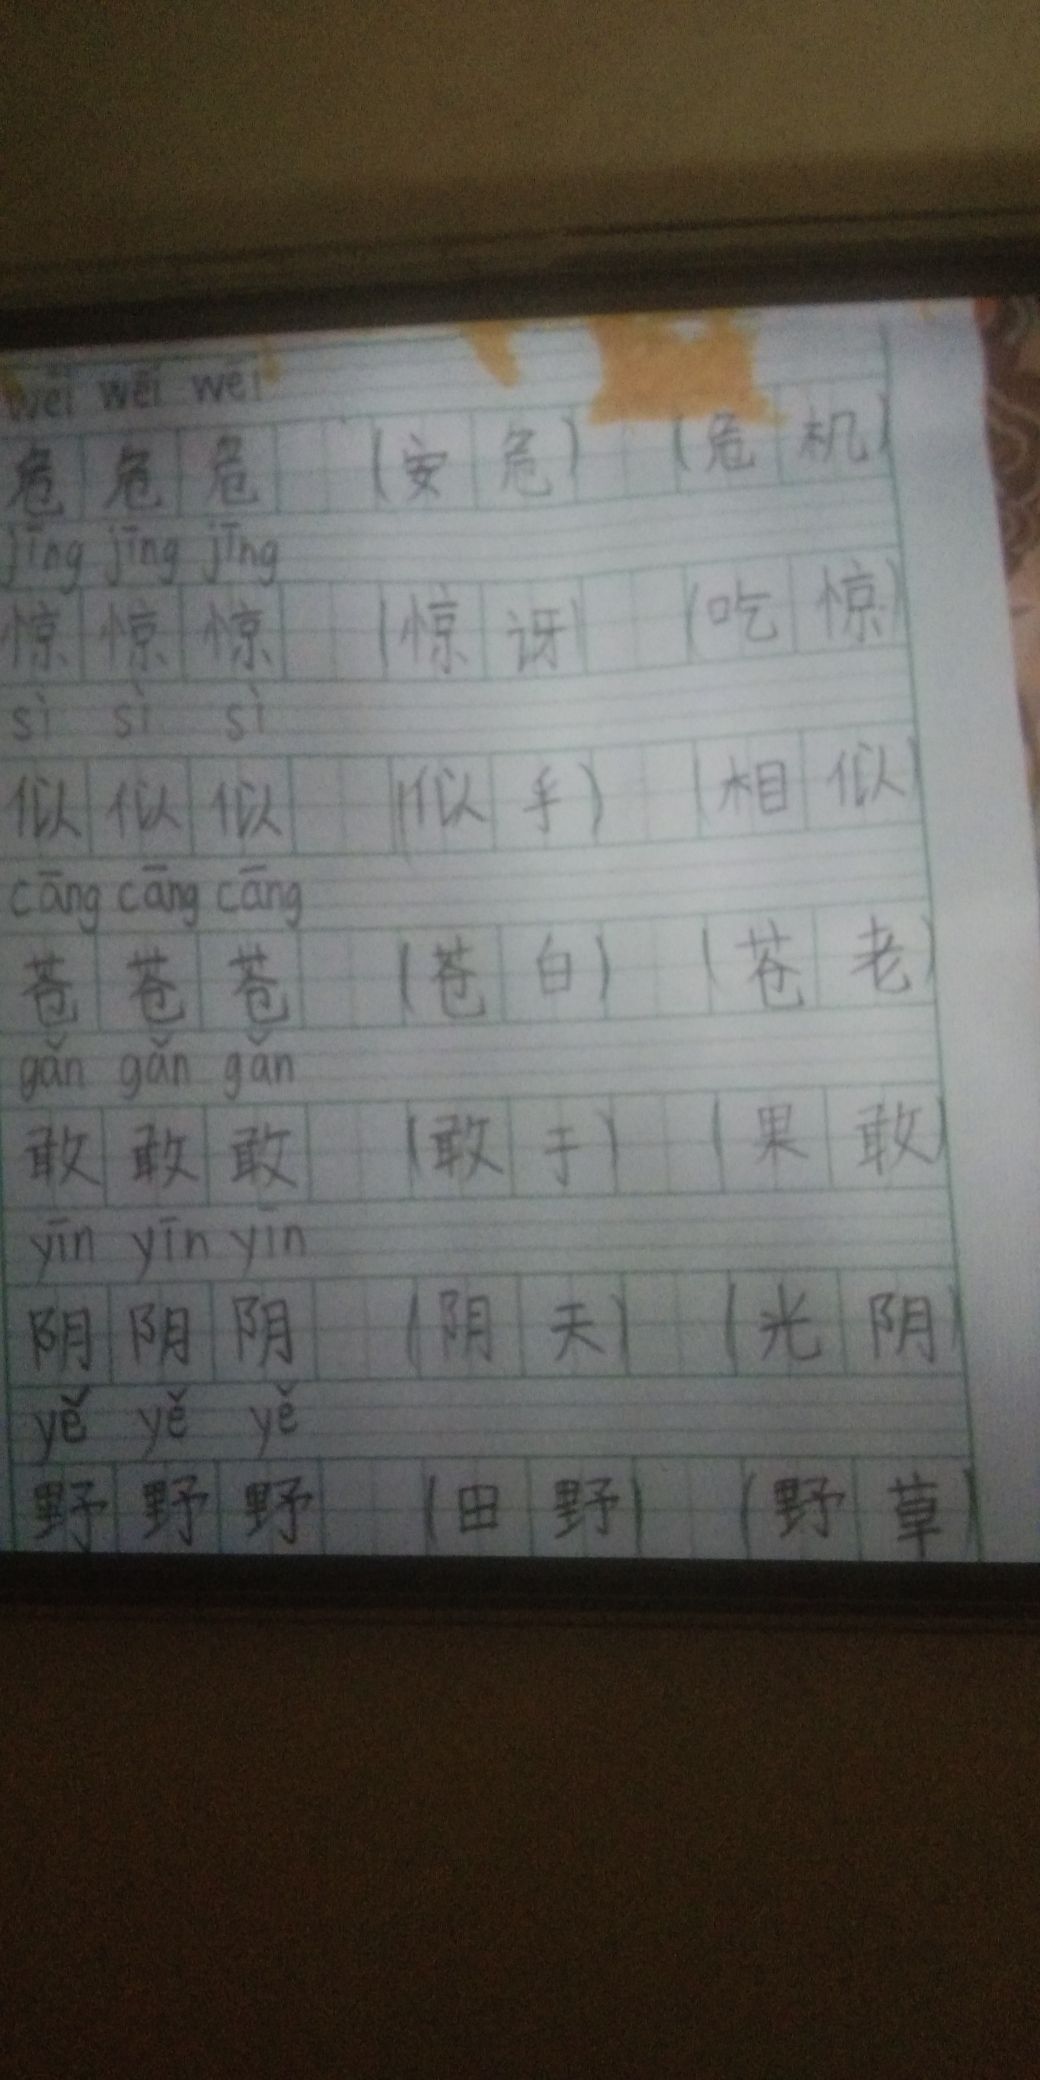 wēi wēi wēi
危 危 危 (安 危) (危 机)
jīng jīng jīng
惊 惊 惊 (惊 讶) (吃 惊)
sì sì sì
似 似 似 (似 乎) (相 似)
cāng cāng cāng
苍 苍 苍 (苍 白) (苍 老)
gǎn gǎn gǎn
敢 敢 敢 (敢 于) (果 敢)
yīn yīn yīn
阴 阴 阴 (阴 天) (光 阴)
yě yě yě
野 野 野 (田 野) (野 草)